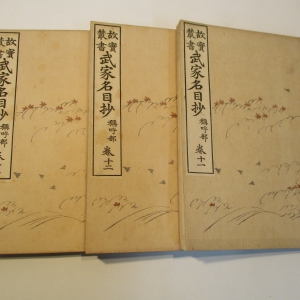 故實
叢書
武家名目抄
稱呼部
卷十一
故實
叢書
武家名目抄
稱呼部
卷十二
故實
叢書
武家名目抄
稱呼部
卷